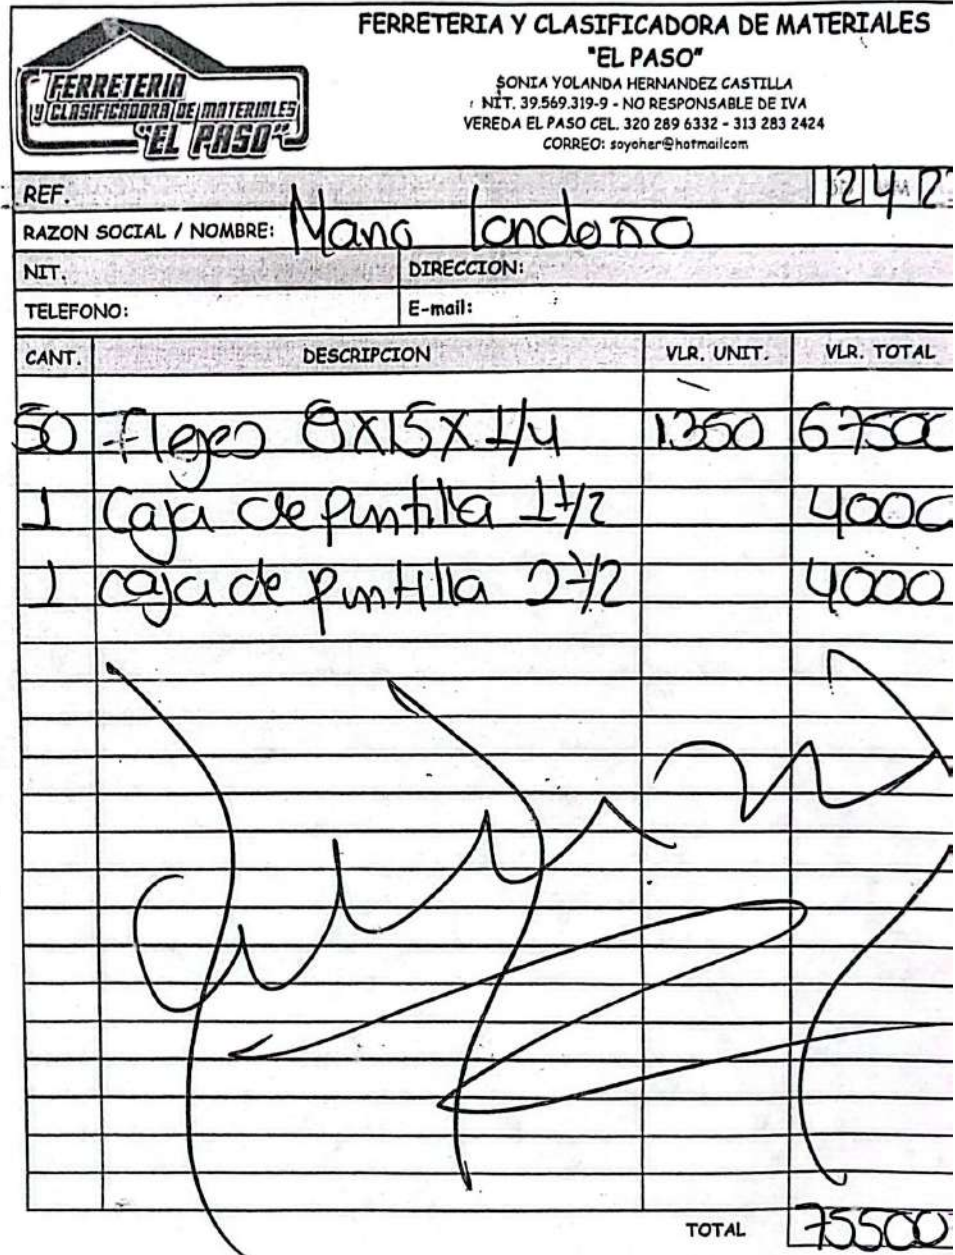 FERRETERIA
Y CLASIFICADORA DE MATERIALES
"EL PASO"
FERRETERIA Y CLASIFICADORA DE MATERIALES
"EL PASO"
SONIA YOLANDA HERNANDEZ CASTILLA
NIT. 39.569.319-9 - NO RESPONSABLE DE IVA
VEREDA EL PASO CEL. 320 289 6332 - 313 283 2424
CORREO: soyoher@hotmailcom
REF. 12 4 2
RAZON SOCIAL / NOMBRE: Londoño
NIT. DIRECCION:
TELEFONO: E-mail:
CANT. DESCRIPCION VLR. UNIT. VLR. TOTAL
50 Flejes 8x15x1/4 1.350 67500
1 Caja de puntilla 1 1/2 4000
1 caja de puntilla 2 1/2 4000
TOTAL 75500